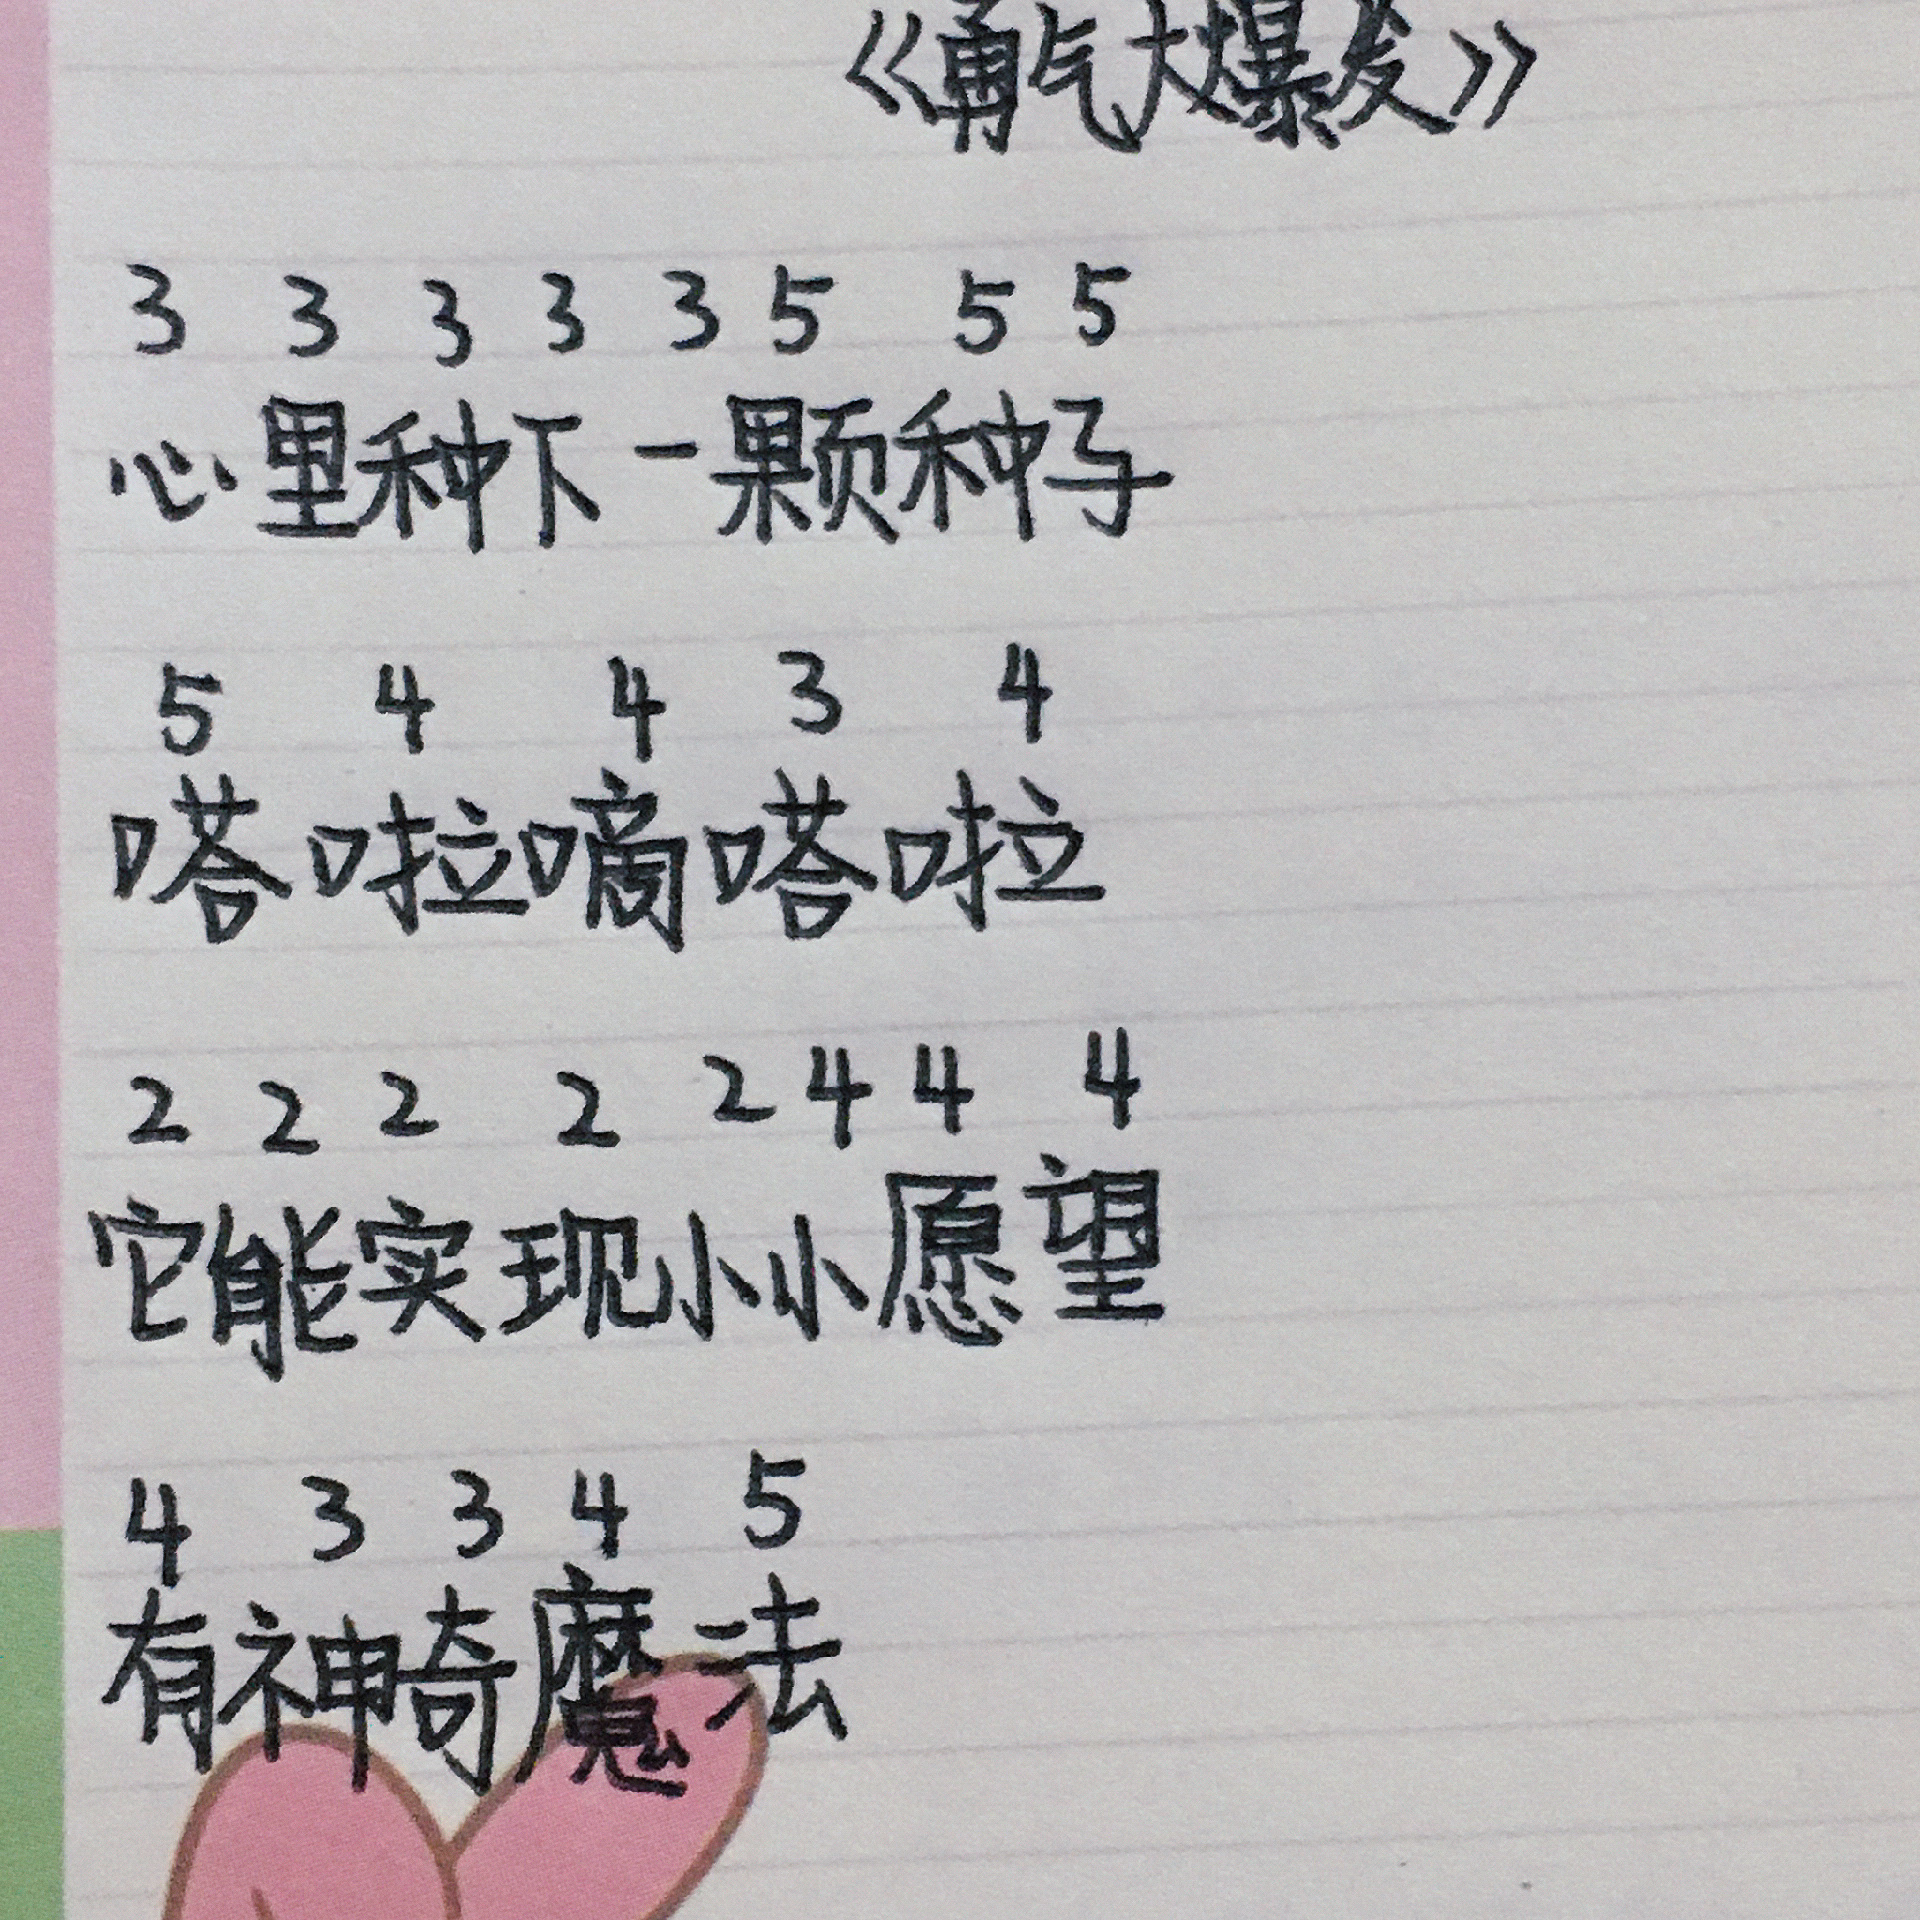 《勇气大爆发》
3 3 3 3 3 5 5 5
心里种下一颗种子
5 4 4 3 4
嗒啦嘀嗒啦
2 2 2 2 2 4 4 4
它能实现小小愿望
4 3 3 4 5
有神奇魔法